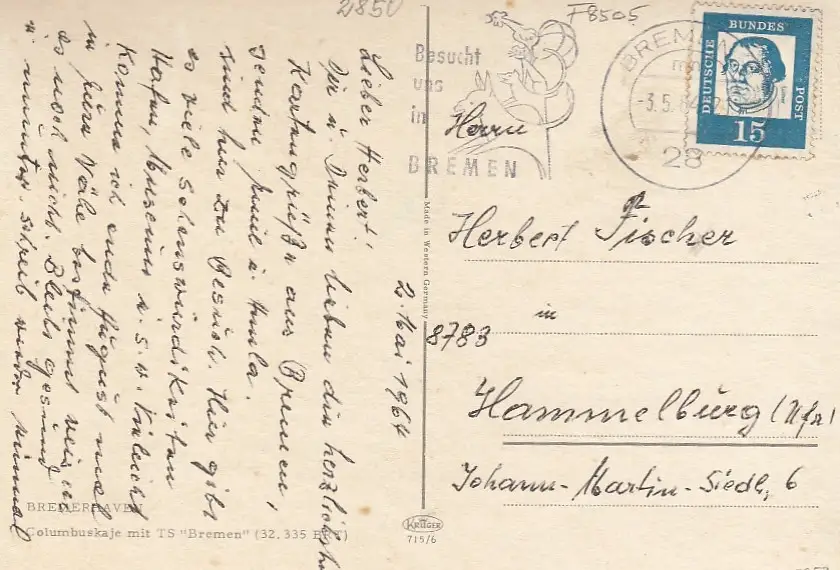 2850
F8505
Besucht
uns
in
BREMEN
BREMEN
-3.5.64
28
DEUTSCHE
BUNDES
POST
15
2. Mai 1964
Lieber Herbert!
Dir u. Deinen Lieben die herzlichsten
Kartengrüße aus Bremen,
senden
sind hier zu Besuch. Hier gibt
es viele Sehenswürdigkeiten
Hafen, Museum u.s.w. Vielleicht
komme ich ende August mal
in eure Nähe bestimmt weiß
es noch nicht. Bleib gesund
u. munter. schreib wieder einmal
Herrn
Herbert Fischer
in
8783
Hammelburg (Ufr)
Johann-Martin-Siedl, 6
Made in Western Germany
KRÜGER
715/6
BREMERHAVEN
Columbuskaje mit TS "Bremen" (32.335 BRT)